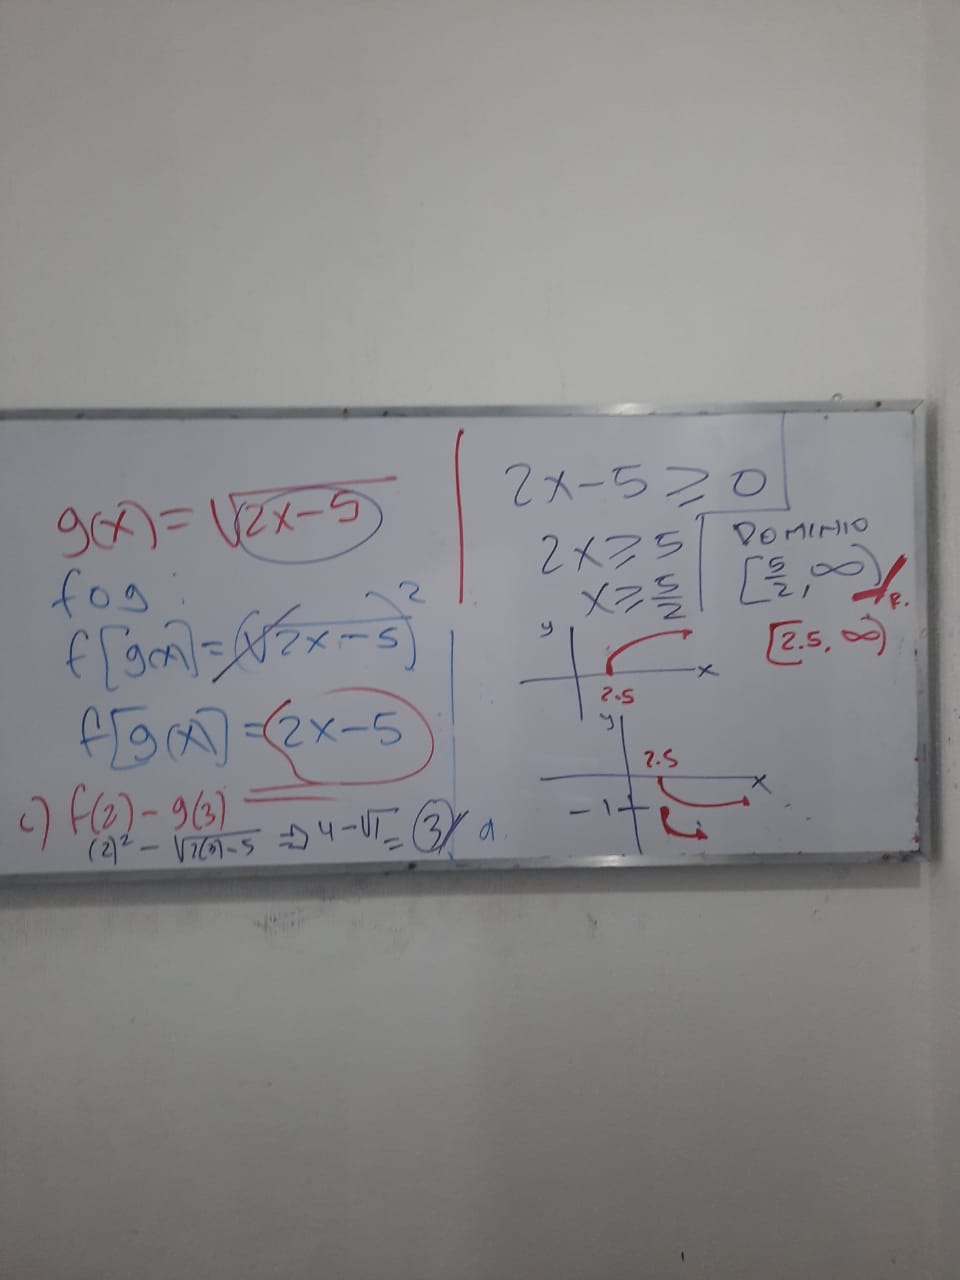 g(x) = √2x-5
fog :
f[g(x)] = (√2x-5)²
f[g(x)] = 2x-5
c) f(2) - g(3)
(2)² - √2(3)-5 ⇒ 4-√1 = 3 a.
2x-5 ≥ 0
2x ≥ 5
x ≥ 5/2
DOMINIO
[5/2, ∞)
R.
[2.5, ∞)
y
x
2.5
y
2.5
x
-1